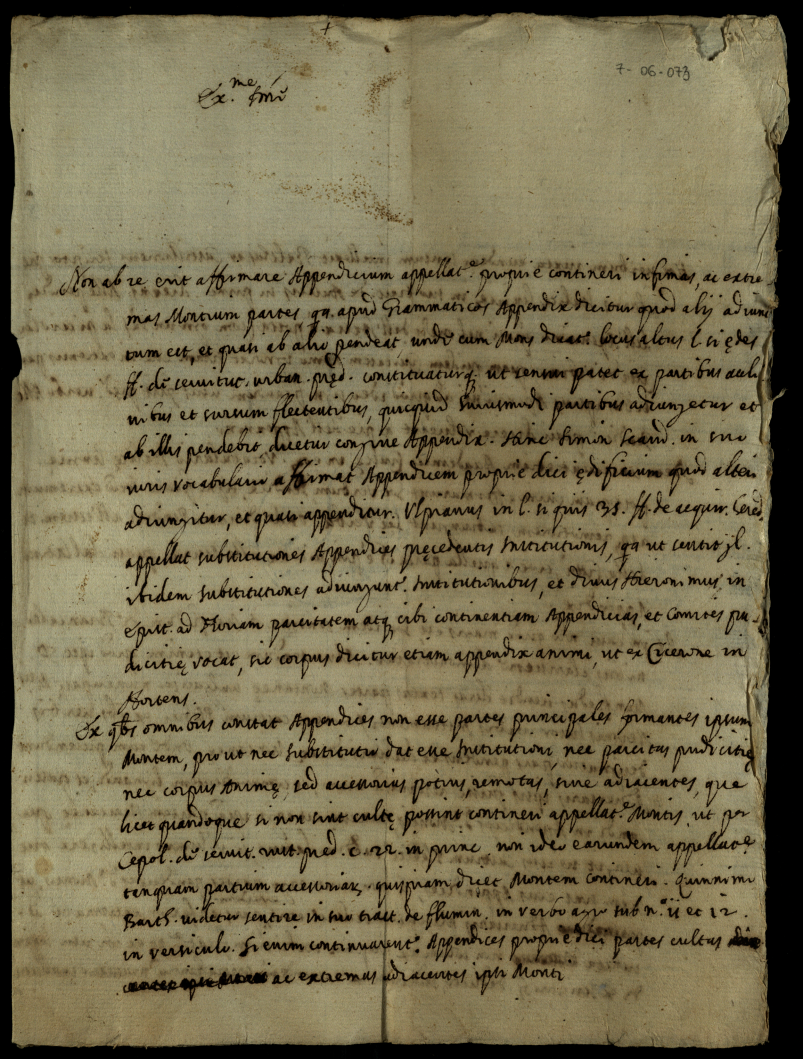 7-06-073
Ex.me
Non ab re erit affirmare Appendicium appellat.e proprie contineri infimas, ac extre-
mas Montium partes, qa apud Grammaticos Appendix dicitur quod alij adiunc
tum est, et quasi ab alio pendeat, unde cum Mons dicat.r locus altus l. si ędes
ff. de servitut. urban. pręd. constituaturq. ut sensui patet ex partibus
nibus et sursum flectentibus, quicquid huiusmodi partibus adiungetur et
ab illis pendebit, dicetur Appendix. Hinc Simon Scard. in suo
iuris vocabulario affirmat Appendicem proprie dici ędificium quod alteri
adiungitur, et quasi appenditur. Ulpianus in l. si quis 35. ff. de acquir. hered.
appellat substitutiones Appendices pręcedentis Institutionis, qa ut sentit gl.
ibidem substitutiones adiungunt.r Institutionibus, et divus Hieronimus in
epist. ad parcitatem atq. cibi continentiam Appendicias, et Comites pu-
dicitię vocat, sic corpus dicitur etiam appendix animi, ut ex Cicerone in
Hortens.
Ex qbs omnibus constat Appendices non esse partes principales formantes ipsum
Montem, prout nec substitutio dat esse Institutioni, nec parcitas pudicitię
nec corpus Animę, sed accessorias potius, remotas, sive adiacentes, que
licet quandoque si non sint cultę possint contineri appellat.e Montis, ut per
Cepol. de servit. rust. pręd. c. 22. in princ. non ideo earundem appellat.e
tanquam partium accessoriar. quispiam dicet Montem contineri. Quinnimo
Barth. videtur sentire in suo tract. de flumin. in verbo agro sub n.o 11 et 12.
in versiculo. Si enim Appendices proprie dici partes cultas
ac extremas adiacentes ipsi Monti